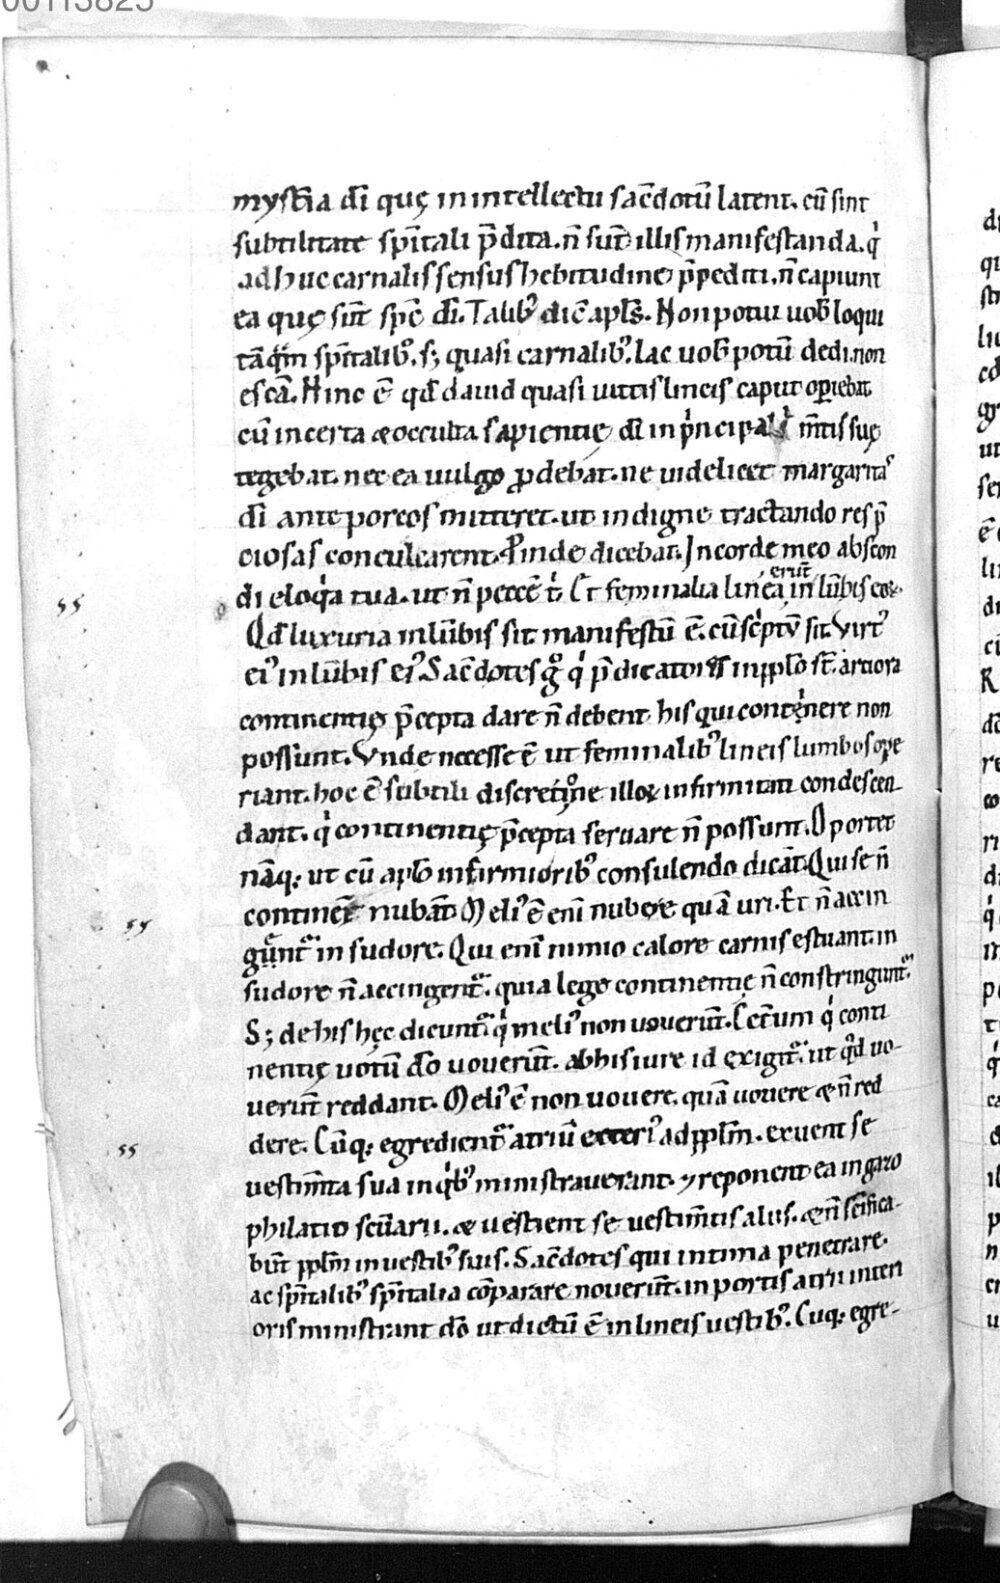 00113825
mystͥia dī quę in intellectu sac̄dotū latent. cū sint
subtilitate spītali p̄dita. n̄ sūt illis manifestanda. qͥ
adhuc carnalis sensus hebitudine p̄pediti. n̄ capiunt
ea quę sūt spc̄ dī. Talibꝰ dic̄ apl̄s. Non potui uob̄ loqui
tāqͣm spītalibꝰ. s; quasi carnalibꝰ. lac uob̄ potū dedi. non
escā. Hinc ē qd̄ dauid quasi uittis lineis caput opiebat
cū incerta & occulta sapientię dī in pͥncipali m̄tis suę
tegebat. nec ea uulgo ꝓdebat. ne uidelicet margaritaˢ
dī ante porcos mitteret. ut indigne tractando res p̄
ciosas conculcarent. Proinde dicebat. In corde meo abscon
di eloqͥa tua. ut n̄ pecce tͥ. Et feminalia linea erūt in lūbis eoꝝ.
Qd̄ luxuria in lūbis sit manifestū ē. cū scͥptū sit. Virtꝰ
eiꝰ in lūbis eiꝰ. Sac̄dotes gͦ qͥ p̄dicatores in pplo s̄t. artiora
continentię p̄cepta dare n̄ debent his qui contͥnere non
possunt. Vnde necesse ē ut feminalibꝰ lineis lumbos ope
riant. hoc ē subtili discretiͦne illoꝝ infirmitati condescen
dant. qͥ continentię p̄cepta seruare n̄ possunt. Oportet
nāq; ut cū aplo infirmioribꝰ consulendo dicāt. Qui se n̄
continēt nubāt. Meliꝰ ē enī nubere quā uri. Et n̄ accin
gūnt᷑ in sudore. Qui enī nimio calore carnis estuant. in
sudore n̄ accingent᷑. quia lege continentię n̄ constringunt᷑.
S; de his hęc dicunt᷑ qͥ meliꝰ non uouerūt. Cetum qͥ conti
nentię uotū dō uouerūt. ab his iure id exigit᷑. ut qd̄ uo-
uerūt reddant. Meliꝰ ē non uouere. quā uouere & n̄ red
dere. Cūq; egredient᷑ atriū exteriꝰ ad pplm̄. exuent se
uestim̄ta sua in qͥbꝰ ministrauerant. & reponent ea in gazo
philatio scūarii. & uestient se uestim̄tis aliis. & n̄ sc̄ifica-
būt pplm̄ in uestibꝰ suis. Sac̄dotes qui intima penetrare.
ac spītalibꝰ spītalia cōparare nouerūt. in portis atrii interi
oris ministrant dō ut dictū ē in lineis uestibꝰ. Cūq; egre-